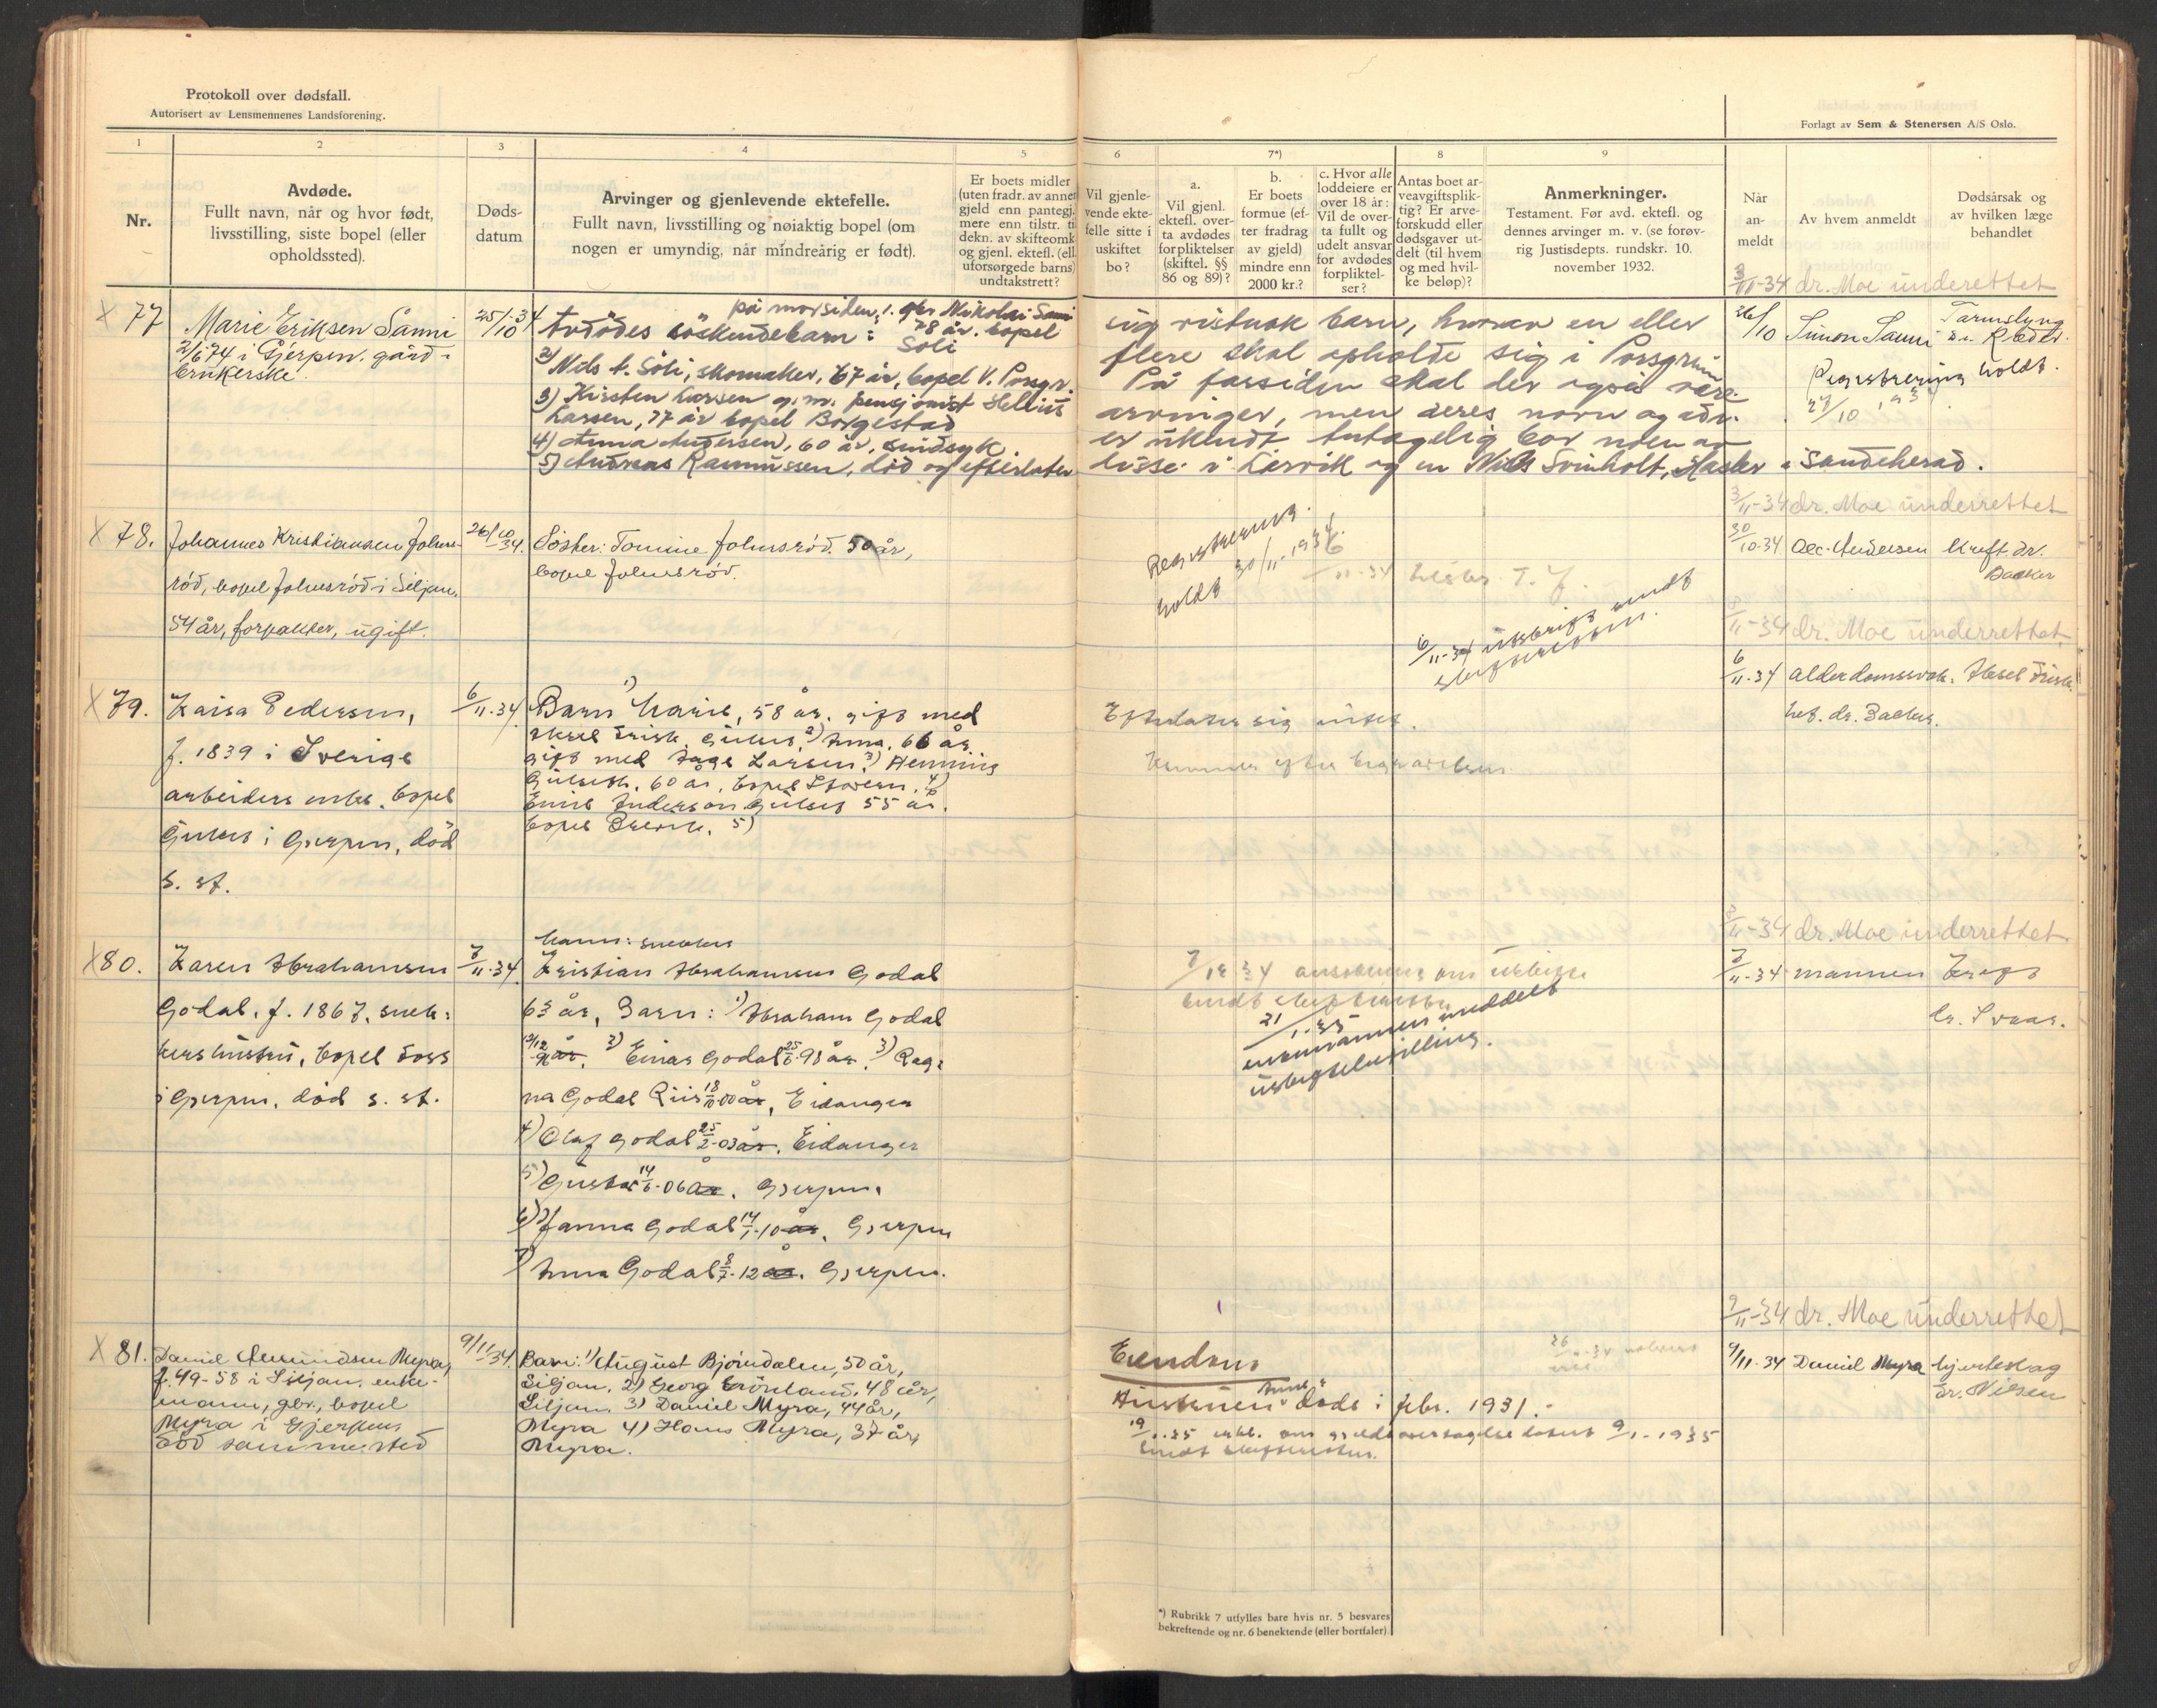 Protokoll over dødsfall.
Autorisert av Lensmennenes Landsforening.
Forlagt av Sem & Stenersen A/S Oslo.
1
2
3
4
5
6
7*)
8
9
Nr.
Avdøde.
Fullt navn, når og hvor født,
livsstilling, siste bopel (eller
opholdssted).
Døds-
datum
Arvinger og gjenlevende ektefelle.
Fullt navn, livsstilling og nøiaktig bopel (om
nogen er umyndig, når mindreårig er født).
Er boets midler
(uten fradr. av annen
gjeld enn pantegj.
mere enn tilstr. ti
dekn. av skifteomk
og gjenl. ektef. (ell
uforsørgede barns)
undtakstrett?
Vil gjenle-
vende ekte-
felle sitte i
uskiftet
bo?
a.
Vil gjenl.
ektefl. over-
ta avdødes
forpliktelser
(skiftel. §§
86 og 89)?
b.
Er boets
formue (ef-
ter fradrag
av gjeld)
mindre enn
2000 kr.?
c. Hvor alle
loddeiere er
over 18 år:
Vil de over-
ta fullt og
udelt ansvar
for avdødes
forpliktel-
ser?
Antas boet ar-
veavgiftsplik-
tig? Er arve-
forskudd eller
dødsgaver ut-
delt (til hvem
og med hvil-
ke beløp)?
Anmerkninger.
Testament. Før avd. ektefl. og
dennes arvinger m. v. (se forøv-
rig Justisdepts. rundskr. 10.
november 1932.
Når
an-
meldt
Av hvem anmeldt
Dødsårsak og
av hvilken læge
behandlet
3/11-34 dr. Moe underrettet
X 77 Marie Eriksen Sanni
2/6 74 i Gjerpen. gård-
brukerske.
25/10-34
på morsiden, 1. gbr Nikolai Sanni
Avdødes søskendebarn: 78 år. bopel
Söli
2) Nils A. Söli, skomaker, 67 år, bopel V. Porsgr.
3) Kirsten Larsen g.m. pensjonist Hellius
Larsen, 77 år bopel Borgestad
4) Anna Andersen, 60 år, sindsyk
5) Andreas Rasmussen, död og efterlater
sig vistnok barn, hvorav en eller
flere skal opholde sig i Porsgrunn
På farsiden skal der også være
arvinger, men deres navn og adr.
er ukendt Antagelig bor noen av
disse i Larvik og en Nils Svinholt, Hasler i Sandeherad.
26/10 Simon Sanni
Tarmslyng
Registrering holdt.
27/10 1934
3/11-34 dr. Moe underrettet
X 78. Johannes Kristiansen Johns-
röd, bopel Johnsröd i Siljan.
54 år, forpakter, ugift.
26/10 34.
Söster: Tomine Johnsröd. 50 år,
bopel Johnsröd.
Registrering
holdt 30/11-1934.
6/11-34 utskrift sendt
skifteretten.
30/10-34 Alc. Andersen Kreft dr.
Backer
8/11-34 dr. Moe underrettet
X 79. Kaisa Pedersen,
f. 1839 i Sverige
arbeiders enke. bopel
Gulset i Gjerpen, död
s. st.
6/11-34
Barn 1) Marie, 58 år. gift med
Aksel Frisk, Gulset, 2) Anna. 66 år
gift med Aage Larsen. 3) Henning
Gulseth. 60 år, bopel Stavern. 4)
Emil Anderson Gulset 55 år.
bopel Brevik. 5)
Efterlater sig intet.
6/11-34 alderdomssvak. Aksel Frisk.
beh. dr. Backer.
8/11-34 dr. Moe underrettet.
X 80. Karen Abrahamsen
Godal, f. 1867, snek-
kers hustru, bopel Foss
i Gjerpen, död s. st.
7/11-34.
Mann: snekker
Kristian Abrahamsen Godal
63 år, Barn: 1) Abraham Godal
2) Einar Godal 25/6-98 år. 3) Rag-
na Godal Riis 18/10-00 år, Eidanger
4) Olaf Godal 25/2-03 år. Eidanger
5) Gustav 14/6-06 år. Gjerpen.
6) Hanna Godal 14/1-10 år. Gjerpen
7) Anna Godal 8/7-12 år. Gjerpen.
7/12 34 ansökning om uskifte
sendt skifteretten
21/1-35
enkemannen meddelt
uskiftebevilling.
7/11-34 mannen Kreft
9/11-34 dr. Moe underrettet
X 81. Daniel Amundsen Myra,
f. 49-58 i Siljan. enke-
mann, gbr., bopel
Myra i Gjerpen.
död sammested
9/11-34.
Barn: 1) August Björndalen, 50 år,
Siljan, 2) Georg Grönland, 48 år,
Siljan 3) Daniel Myra, 44 år,
Myra 4) Hans Myra, 37 år,
Myra.
Eiendom
Hustruen döde i febr. 1931.-
19/1-35 erkl. om gjeldsovertagelse datert 9/1-1935
sendt skifteretten.
9/11-34 Daniel Myra hjerteslag
dr. Nilsen
*) Rubrikk 7 utfylles bare hvis nr. 5 besvares
bekreftende og nr. 6 benektende (eller bortfaler)